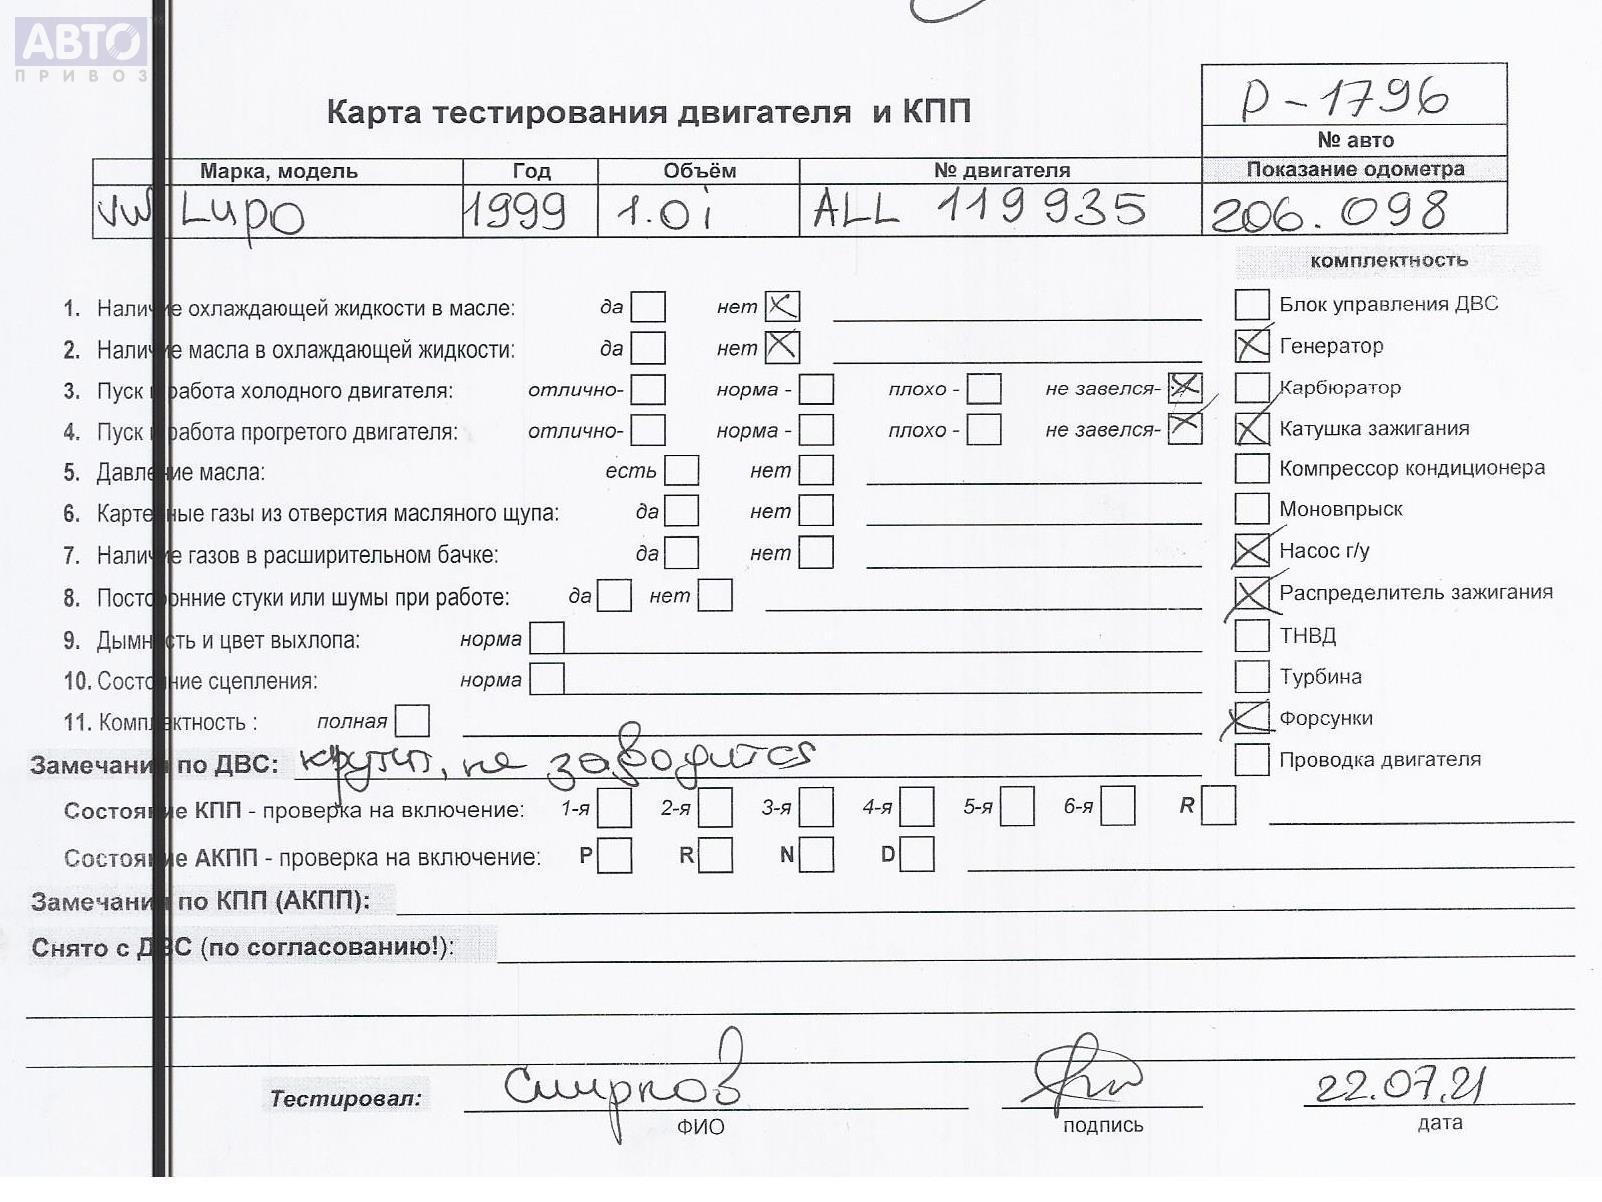 АВТО
ПРИВОЗ
P-1796
№ авто
Карта тестирования двигателя и КПП
Марка, модель Год Объём № двигателя Показание одометра
VW Lupo 1999 1.0i ALL 119935 206.098
комплектность
1. Наличие охлаждающей жидкости в масле: да нет
Блок управления ДВС
2. Наличие масла в охлаждающей жидкости: да нет
Генератор
3. Пуск и работа холодного двигателя: отлично- норма - плохо - не завелся-
Карбюратор
4. Пуск и работа прогретого двигателя: отлично- норма - плохо - не завелся-
Катушка зажигания
5. Давление масла: есть нет
Компрессор кондиционера
6. Картерные газы из отверстия масляного щупа: да нет
Моновпрыск
7. Наличие газов в расширительном бачке: да нет
Насос г/у
8. Посторонние стуки или шумы при работе: да нет
Распределитель зажигания
9. Дымность и цвет выхлопа: норма
ТНВД
10. Состояние сцепления: норма
Турбина
11. Комплектность : полная
Форсунки
Замечания по ДВС: крутит, не заводится
Проводка двигателя
Состояние КПП - проверка на включение: 1-я 2-я 3-я 4-я 5-я 6-я R
Состояние АКПП - проверка на включение: P R N D
Замечания по КПП (АКПП):
Снято с ДВС (по согласованию!):
Тестировал: Смирнов 22.07.21
ФИО подпись дата